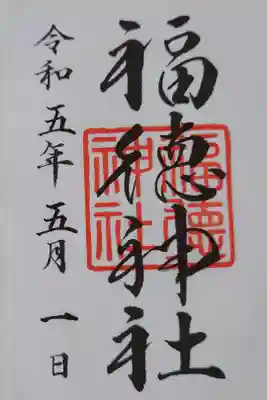 福徳神社
福徳神社
令和五年五月一日